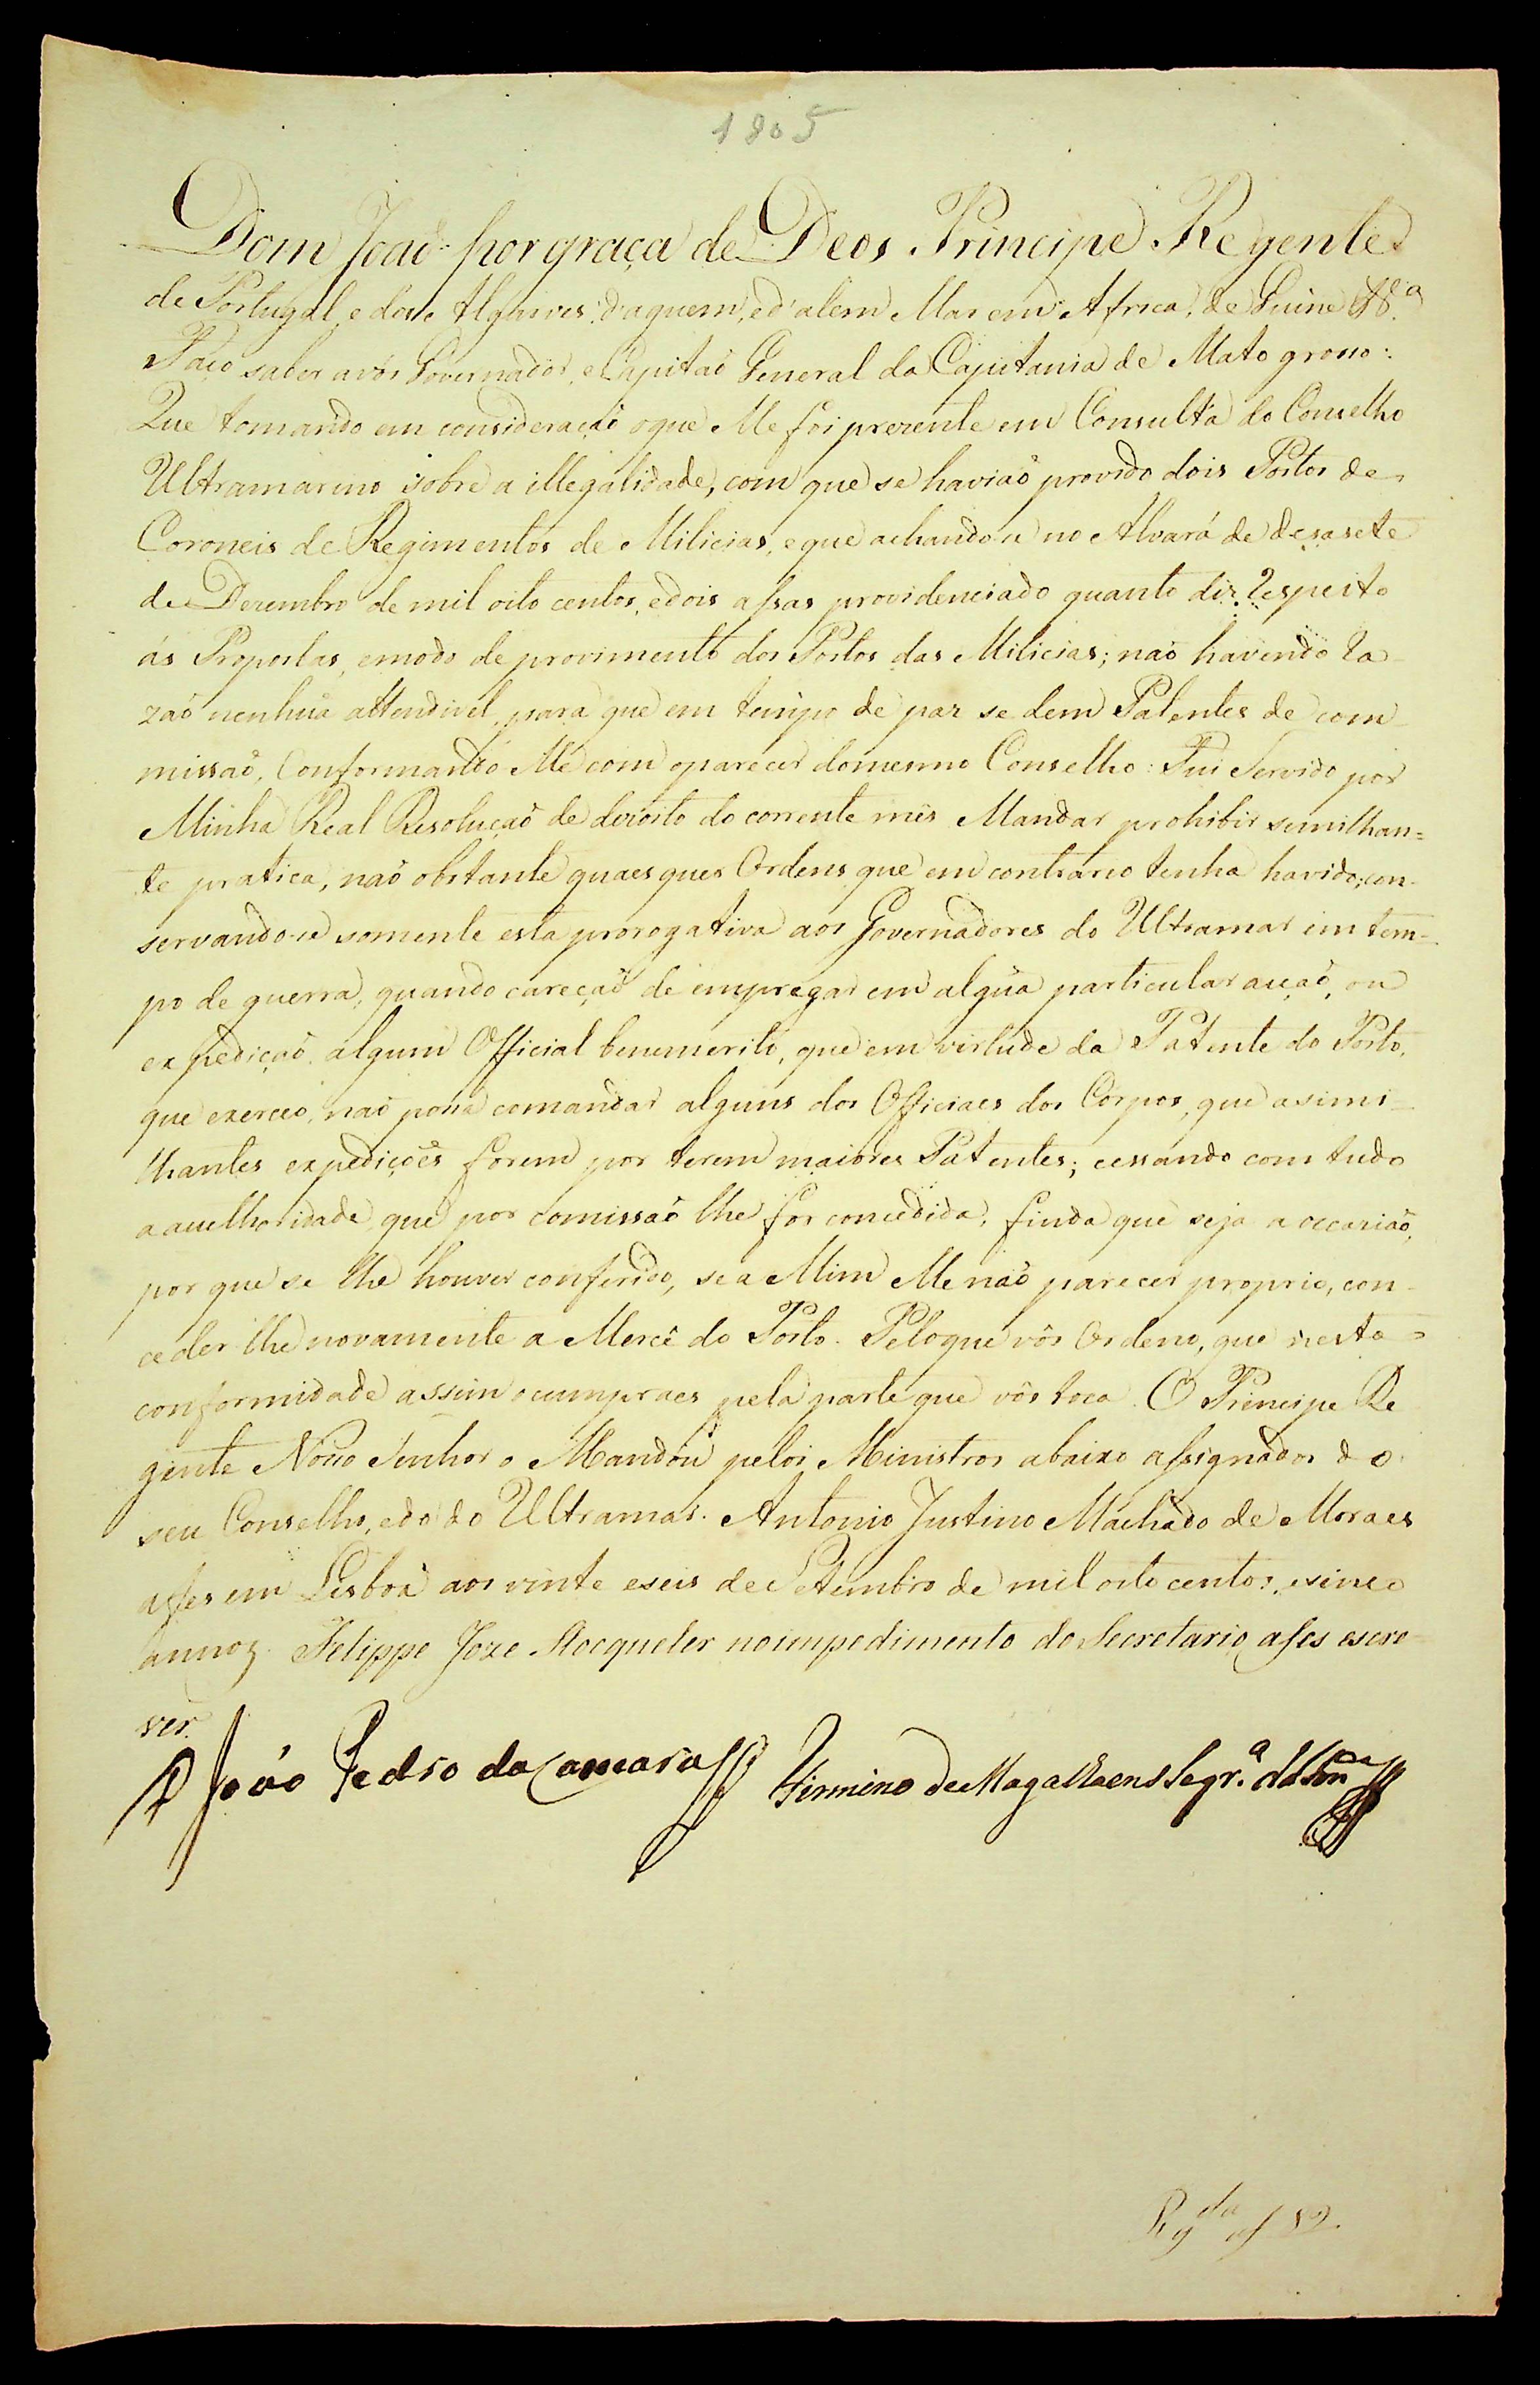 1805
Dom Joaõ por graça de Deos Principe Regente
de Portugal, e dos Algarves, d'aquem, e d'alem Mar em Africa, de Guiné &.ª
Faço saber a vós Governador, e Capitaõ General da Capitania de Mato grosso:
Que tomando em consideraçaõ o que Me foi prezente em Consulta do Conselho
Ultramarino sobre a illegalidade, com que se haviaõ provido dois Postos de
Coroneis de Regimentos de Milicias, e que achando-se no Alvará de dezasete
de Dezembro de mil oito centos, e dois assas providenciado quanto diz respeito
ás Propostas, e modo de provimento dos Postos das Milicias; naõ havendo ra-
zaõ nenhuã attendivel, para que em tempo de paz se dem Patentes de com-
missaõ, Conformando Me com o parecer do mesmo Conselho: Fui Servido por
Minha Real Resoluçaõ de dezoito do corrente mês Mandar prohibir similhan=
te pratica, naõ obstante quaesquer Ordens que em contrario tenha havido; con-
servando-se somente esta prorogativa aos Governadores do Ultramar em tem=
po de guerra, quando careçaõ de empregar em algũa particular acçaõ, ou
expediçaõ algum Official benemerito, que em virtude da Patente do Posto,
que exerceo, naõ possa comandar alguns dos Officiaes dos Corpos, que a simi-
lhantes expediçoẽs forem por terem maiores Patentes; cessando com tudo
a authoridade, que por comissaõ lhe for concedida, finda que seja a occaziaõ,
por que se lhe houver conferido, se a Mim Me naõ parecer proprio, con-
ceder lhe novamente a Mercê do Posto. Pelo que vôs Ordeno, que nesta
conformidade assim o cumpraes pela parte que vôs toca. O Principe Re
gente Nosso Senhor o Mandou pelos Ministros abaixo assignados do
seu Conselho, e do do Ultramar. Antonio Justino Machado de Moraes
a fes em Lisboa aos vinte e seis de Setembro de mil oito centos, e sinco
annos. Felippe Joze Stocqueler no impedimento do Secretario a fes escre-
ver.
D João Pedro da Camara Firmino de Magalhaens Seqr.ª da Fon.ca
Reg.da a f 82.